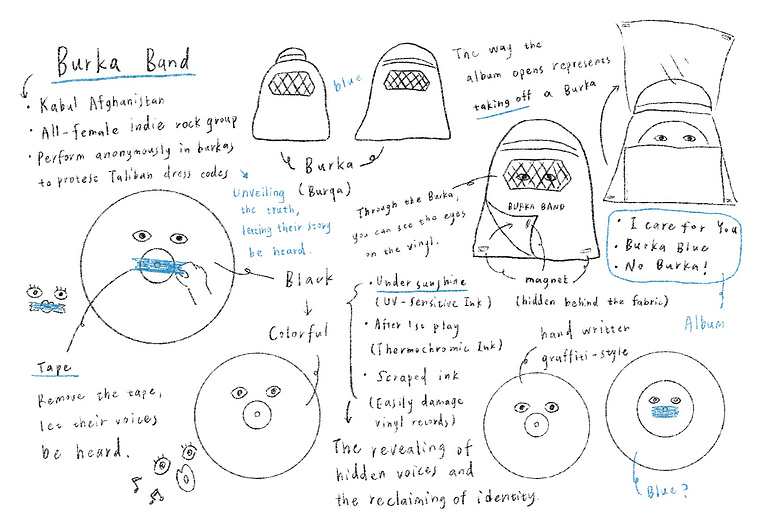 Burka Band
• Kabul Afghanistan
• All-female indie rock group
• Perform anonymously in burkas
to protest Taliban dress codes
Unveiling
the truth,
letting their story
be heard.
blue
Burka
(Burqa)
The way the
album opens represents
taking off a Burka
Through the Burka,
you can see the eyes
on the vinyl.
BURKA BAND
magnet
(hidden behind the fabric)
• I care for You
• Burka Blue
• No Burka!
Album
Black
Colorful
• Under sunshine
(UV-sensitive Ink)
• After 1st play
(Thermochromic Ink)
• Scraped ink
(Easily damage
vinyl records)
The revealing of
hidden voices and
the reclaiming of identity.
Tape
Remove the tape,
let their voices
be heard.
hand written
graffiti-style
Blue?